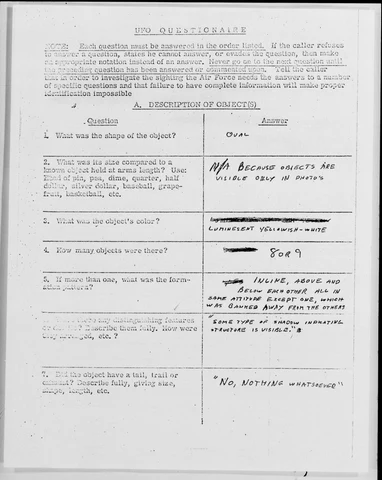 UFO QUESTIONAIRE
NOTE: Each question must be answered in the order listed. If the caller refuses
to answer a question, state he cannot answer, or evades the question, then make
an appropriate notation instead of an answer. Never go on to the next question until
the preceding question has been answered or commented upon. Tell the caller
that in order to investigate the sighting the Air Force needs the answers to a number
of specific questions and that failure to have complete information will make proper
identification impossible
A. DESCRIPTION OF OBJECT(S)
Question Answer
1. What was the shape of the object? OVAL
2. What was its size compared to a
known object held at arms length? Use:
Head of pin, pea, dime, quarter, half
dollar, silver dollar, baseball, grape-
fruit, basketball, etc.
N/A BECAUSE OBJECTS ARE
VISIBLE ONLY IN PHOTOS
3. What was the object's color?
LUMINESENT YELLOWISH-WHITE
4. How many objects were there? 8 OR 9
5. If more than one, what was the form-
ation
INLINE, ABOVE AND
BELOW EACH OTHER ALL IN
SAME ATTITUDE EXCEPT ONE, WHICH
WAS BANKED AWAY FROM THE OTHERS
there any distinguishing features
Describe them fully. How were
they arranged, etc.?
"SOME TYPE OF SHADOW INDICATING
STRUCTURE IS VISIBLE."
7. Did the object have a tail, trail or
exhaust? Describe fully, giving size,
shape, length, etc.
"NO, NOTHING WHATSOEVER"